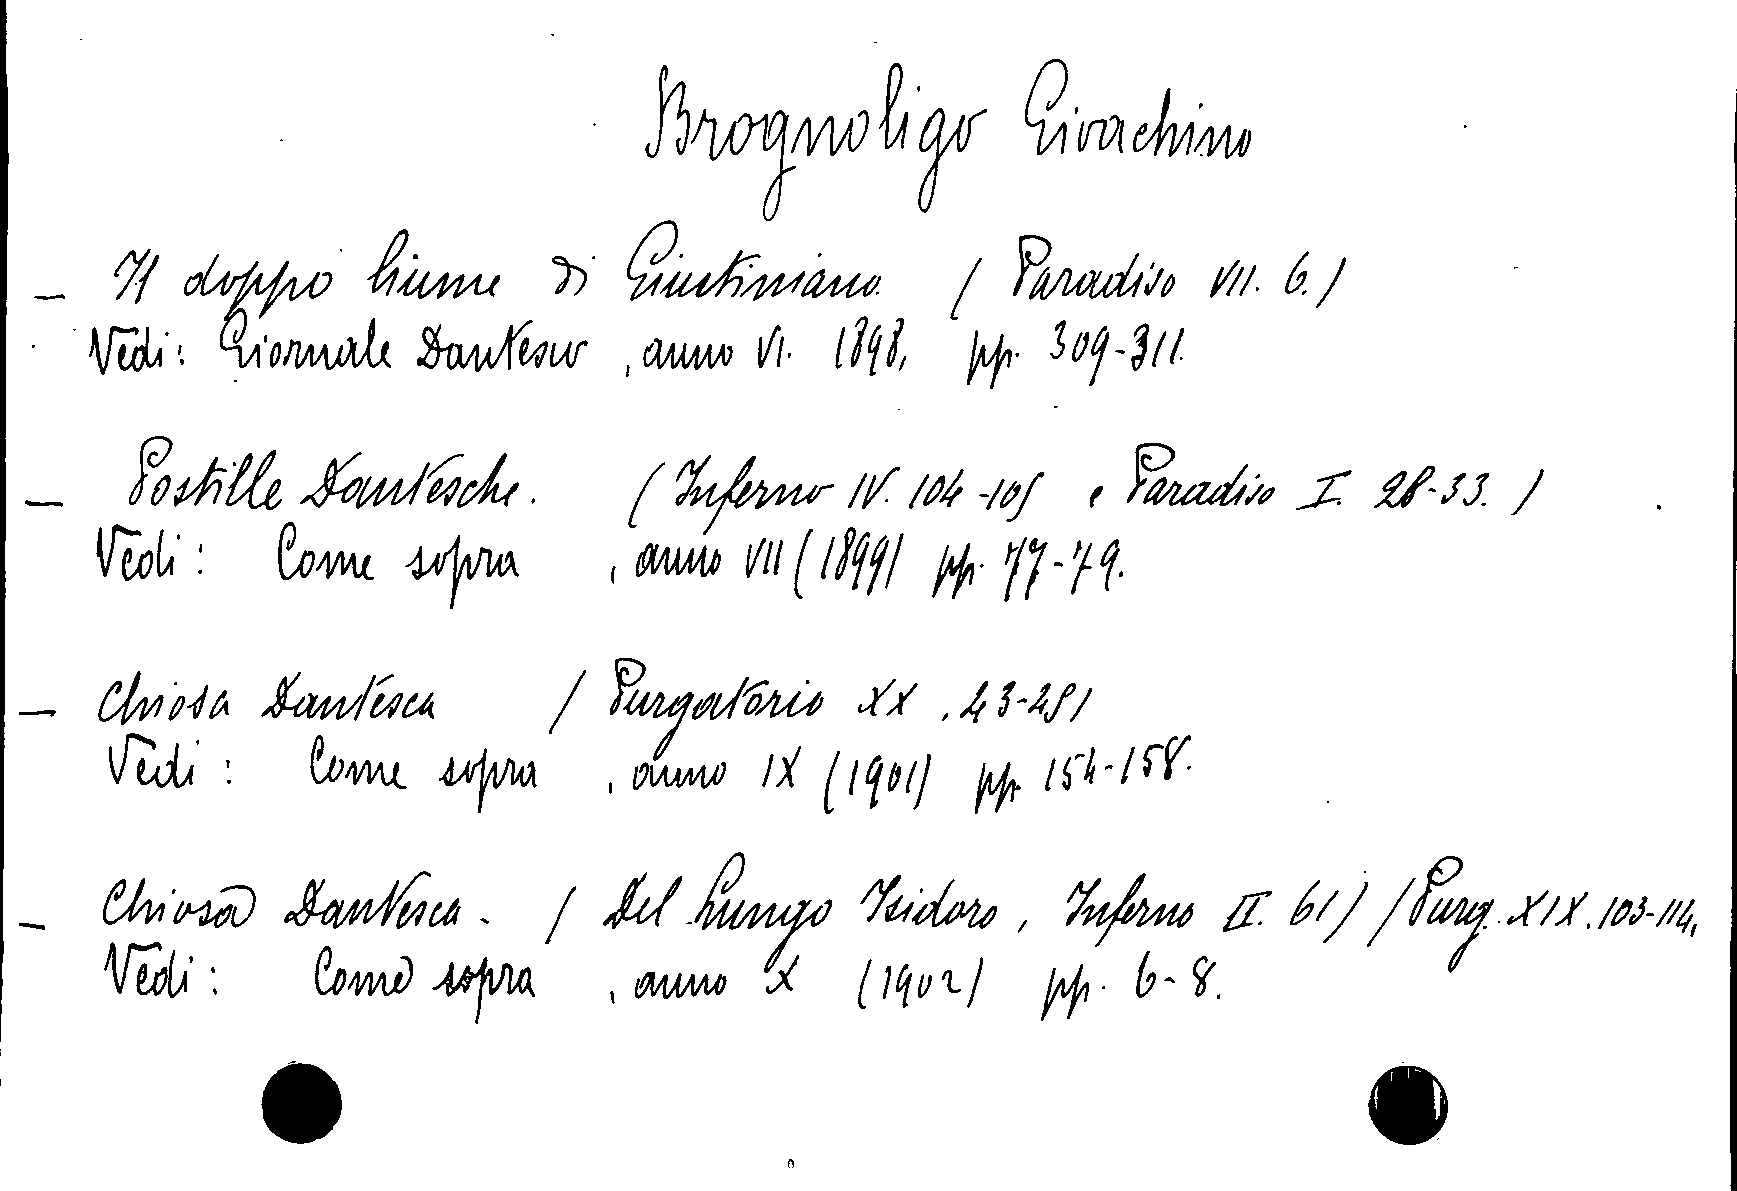 Brognoligo Gioachino
— Il doppo lume di Giustiniano. (Paradiso VII. 6.)
Vedi: Giornale Dantesco, anno VI. 1898, pp. 309-311.
— Postille Dantesche. (Inferno IV. 104-105 e Paradiso I. 28-33.)
Vedi: Come sopra, anno VII (1899) pp. 77-79.
— Chiosa Dantesca (Purgatorio XX, 43-45)
Vedi: Come sopra, anno IX (1901) pp. 154-158.
— Chiosa Dantesca. (Del Lungo Isidoro, Inferno II. 61) (Purg. XIX. 103-114,
Vedi: Come sopra, anno X (1902) pp. 6-8.